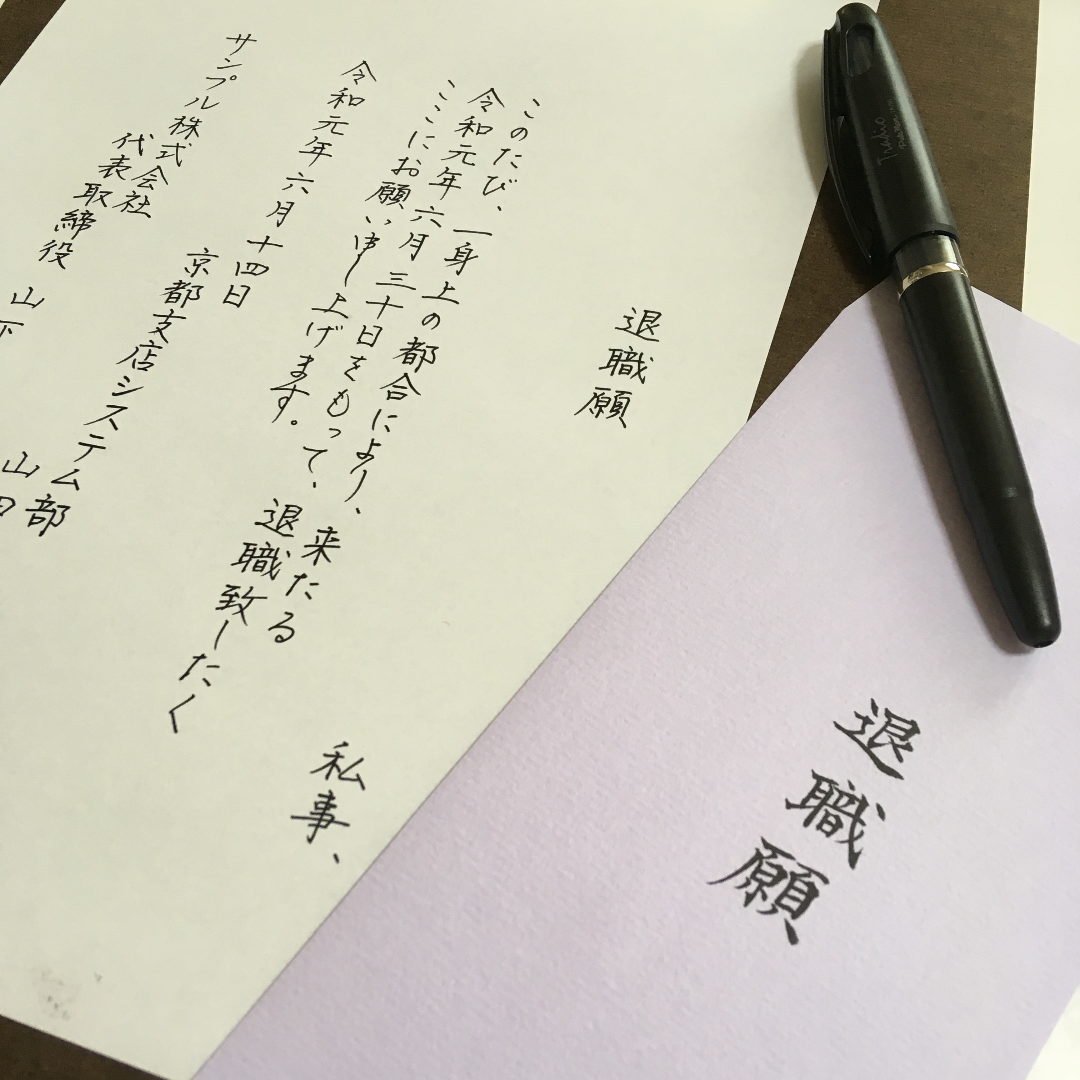 退職願
私事、
このたび、一身上の都合により、来たる
令和元年六月三十日をもって、退職致したく
ここにお願い申し上げます。
令和元年六月十四日
京都支店システム部
山田
サンプル株式会社
代表取締役 山下
退職願